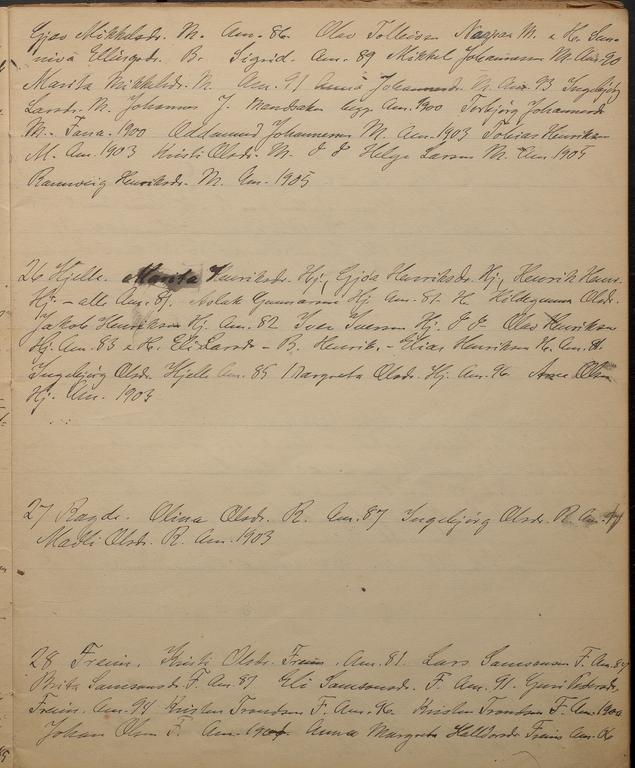 Gjøa Mikkelsdr. M. Am. 86. Olav Tolleivson M. e H. Sun-
niva Ellingsdr. B. Sigrid. Am. 89 Mikkel Johannesson M. Am. 90
Marita Mikkelsdr. M. Am. 91 Anna Johannesdr. M. Am. 93 Ingebjörg
Larsdr. M. Johannes J. Am. 1900 Torbjörg Johannesdr.
M. 1900 Oddamund Johannesson M. Am. 1903 Tobias Henrikson
M. Am. 1903 Kristi Olsdr. M. Helge Larson M. Am. 1905
Rannveig Henriksdr. M. Am. 1905
26 Hjelle. Marita Henriksdr. Hj., Gjøa Henriksdr. Hj., Henrik
Hj. – alle Am. Aslak Gunnarson Hj. Am. 81. Olsdr.
Jakob Henrikson Hj. Am. 82 Iver Iverson Hj. Olav Henrikson
Hj. Am. 83 e H. Eli Larsdr. – B. Henrik. – Elias Henrikson H. Am. 84.
Ingebjörg Olsdr. Hjelle Am. 85 Margreta Olsdr. Hj. Am. 96
Hj. Am. 1903
27 Olina Olsdr. R. Am. 87 Ingebjörg Olsdr. R. Am.
Madli Olsdr. R. Am. 1903
28 Freim. Kristi Olsdr. Freim. Am. 81. Lars Samsonson F. Am. 87
Brita Samsonsdr. F. Am. 87 Eli Samsonsdr. F. Am. 91. Guri
Freim. Am. 94 Kristen Trondson F. Am. Kristen Trondson F. Am. 1900
Johan Olson F. Am. Anna Margreta Halldorsdr. Freim Am.